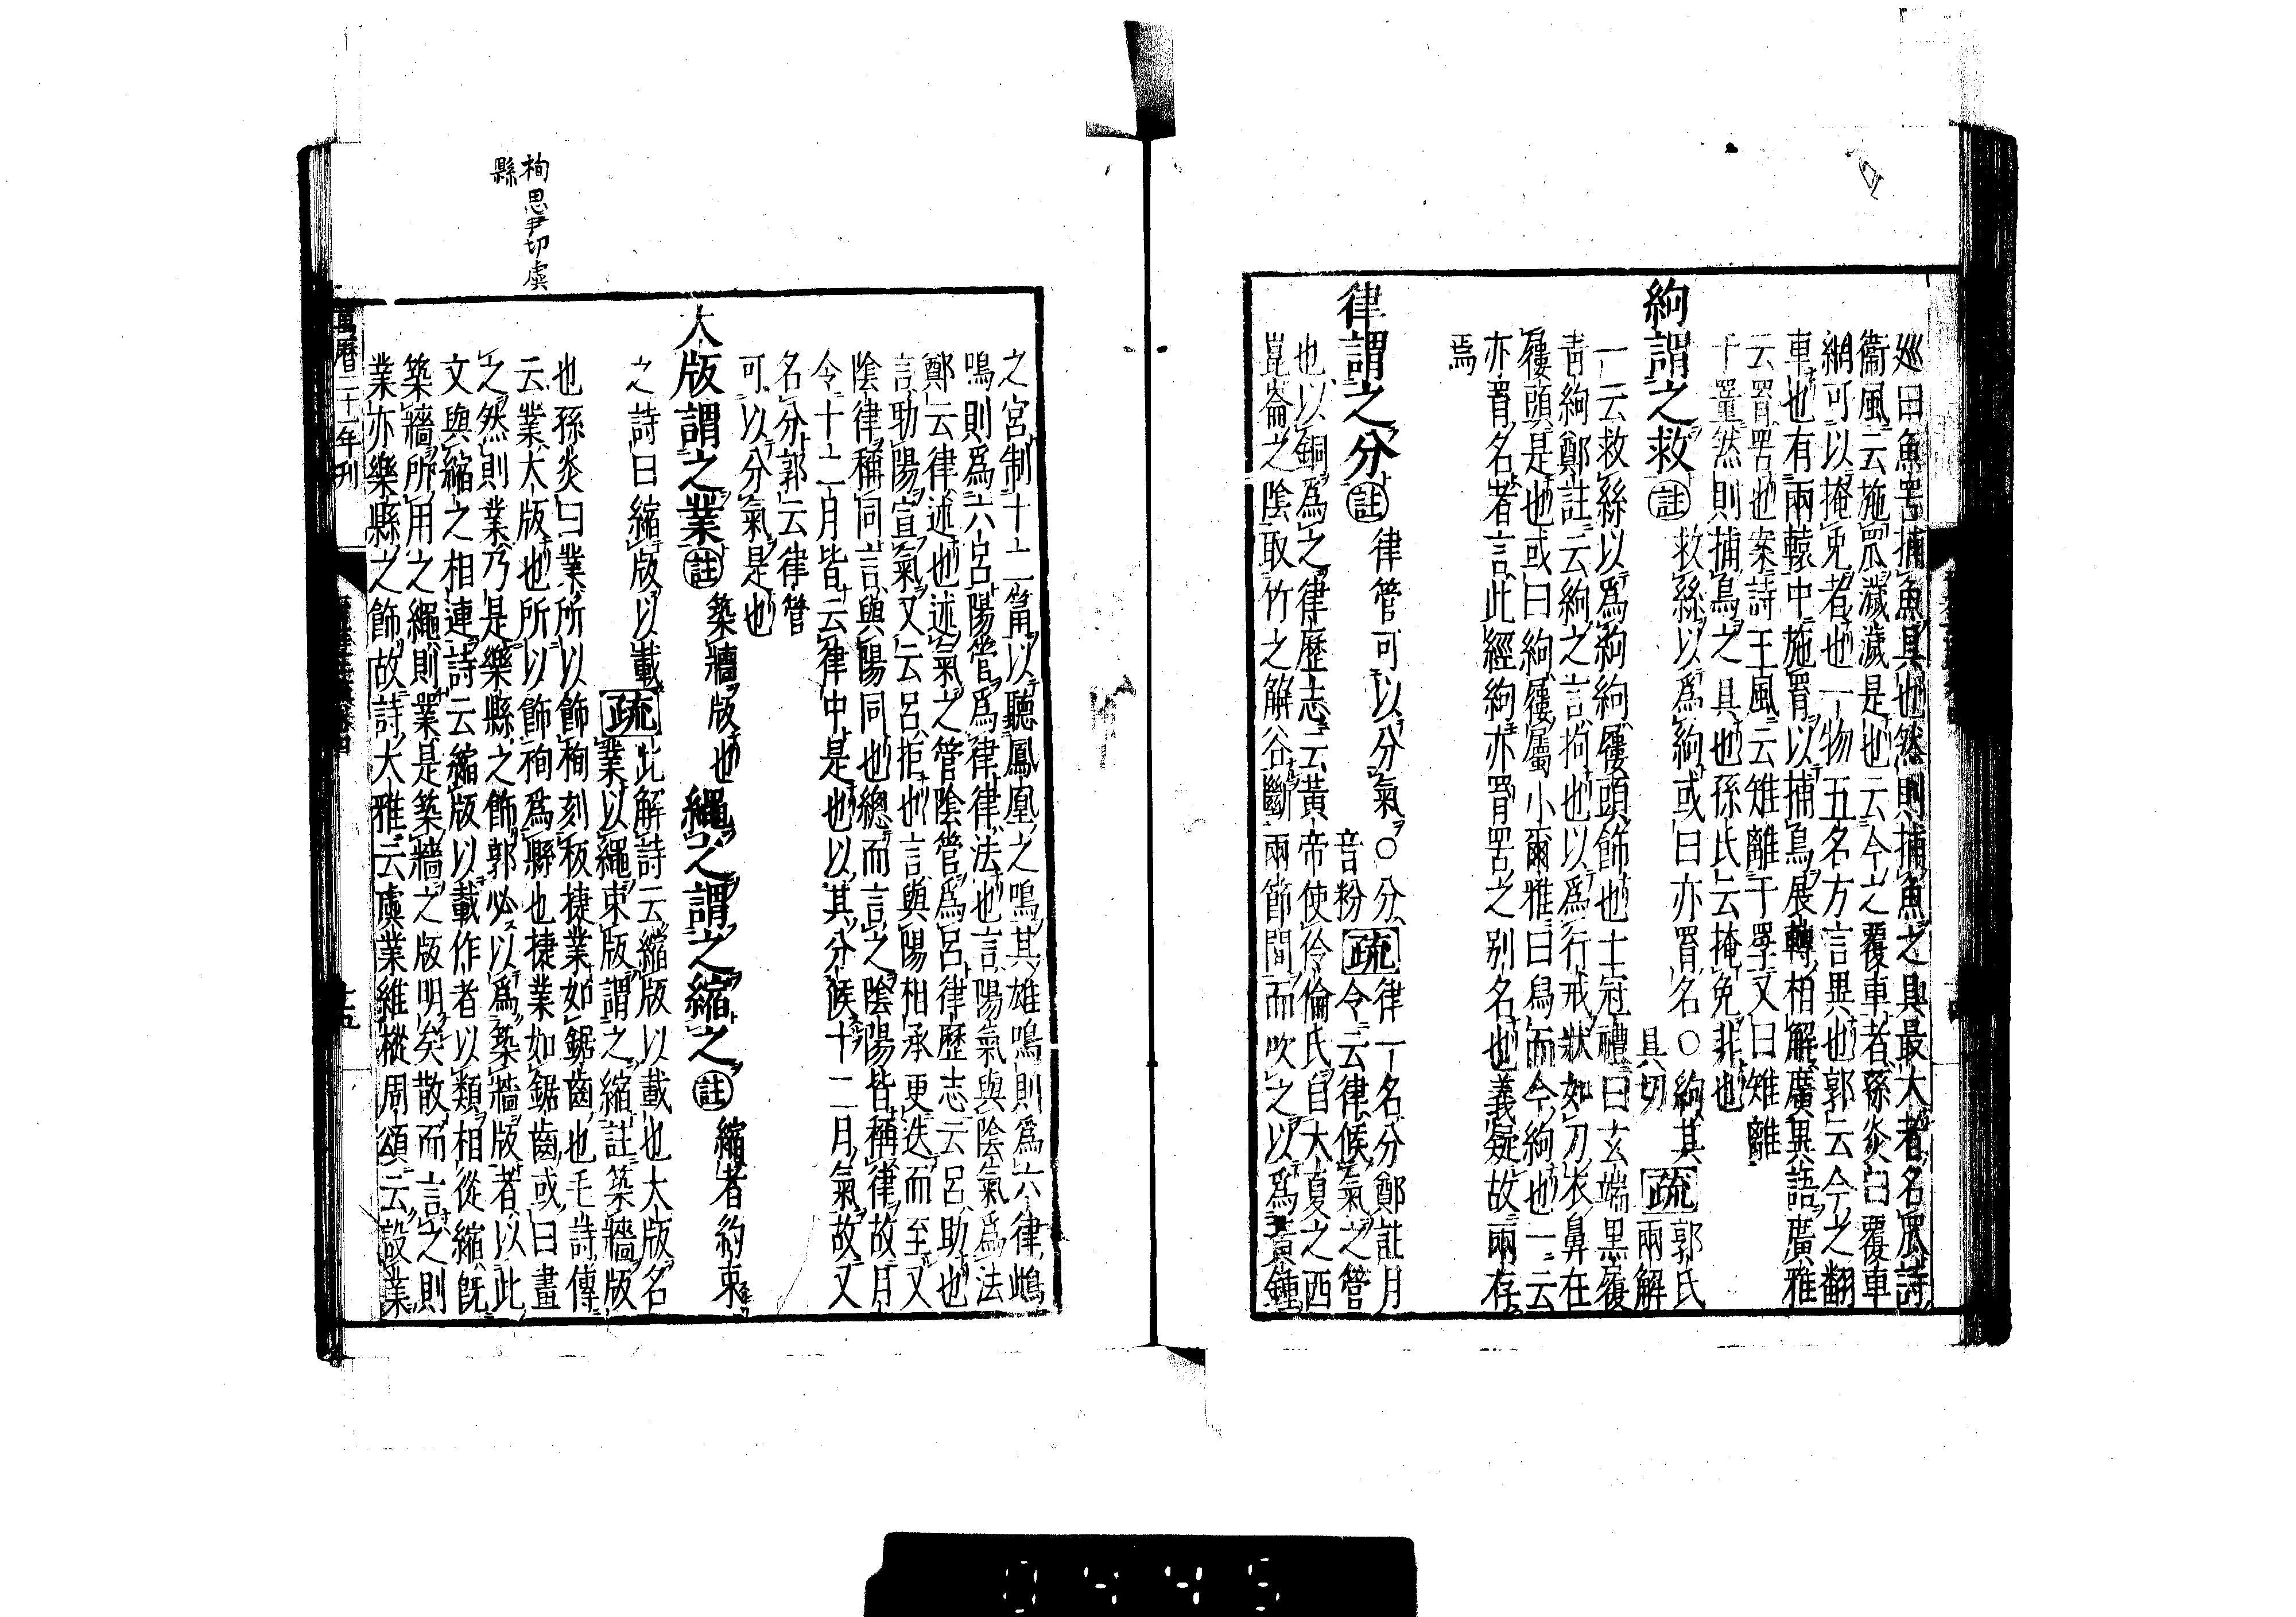 巡曰魚罟捕魚具也然則捕魚之具最大者名罛詩
衞風云施罛濊濊是也云今之覆車者孫炎曰覆車
網可以掩兔者也一物五名方言異也郭云今之翻
車也有兩轅中施罥以捕鳥展轉相解廣異語廣雅
云罥罟也案詩王風云雉離于罦又曰雉離
于罿然則捕鳥之具也孫氏云掩兔非也
絇謂之救註救絲以爲絇或曰亦罥名○絇其
具切疏郭氏
兩解
一云救絲以爲絇絇屨頭飾也士冠禮曰玄端黑屨
靑絇鄭註云絇之言拘也以爲行戒狀如刀衣鼻在
屨頭是也或曰絇屨屬小爾雅曰烏而今絇也一云
亦罥名者言此經絇亦罥罟之别名也義疑故兩存
焉
律謂之分註律管可以分氣○分
音粉疏律一名分鄭註月
令云律候氣之管
也以銅爲之律歷志云黃帝使伶倫氏自大夏之西
崑崙之陰取竹之解谷斷兩節間而吹之以爲黃鍾
之宮制十二筩以聽鳳凰之鳴其雄鳴則爲六律鴟
鳴則爲六呂陽管爲律律法也言陽氣與陰氣爲法
鄭云律述也述氣之管陰管爲呂律歷志云呂助也
言助陽宣氣又云呂拒也言與陽相承更迭而至又
陰律稱同言與陽同也總而言之陰陽皆稱律故月
令十二月皆云律中是也以其分候十二月氣故又
名分郭云律管
可以分氣是也
大版謂之業註築牆版也繩之謂之縮之註縮者約束
之詩曰縮版以載疏此解詩云縮版以載也大版名
業以繩束版謂之縮註築牆版
也孫炎曰業所以飾栒刻板捷業如鋸齒也毛詩傳
云業大版也所以飾栒爲縣也捷業如鋸齒或曰畫
之然則業乃是樂縣之飾郭必以爲築牆版者以此
文與縮之相連詩云縮版以載作者以類相從縮旣
築牆所用之繩則業是築牆之版明矣散而言之則
業亦樂縣之飾故詩大雅云虡業維樅周頌云設業
萬曆二十一年刊
栒思尹切虡
縣
0445